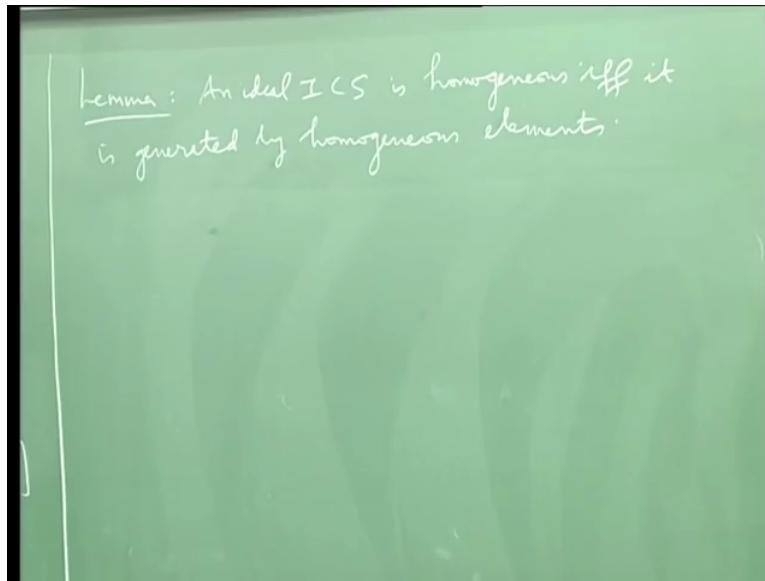 Lemma : An ideal I ⊂ S is homogeneous iff it
is generated by homogeneous elements.